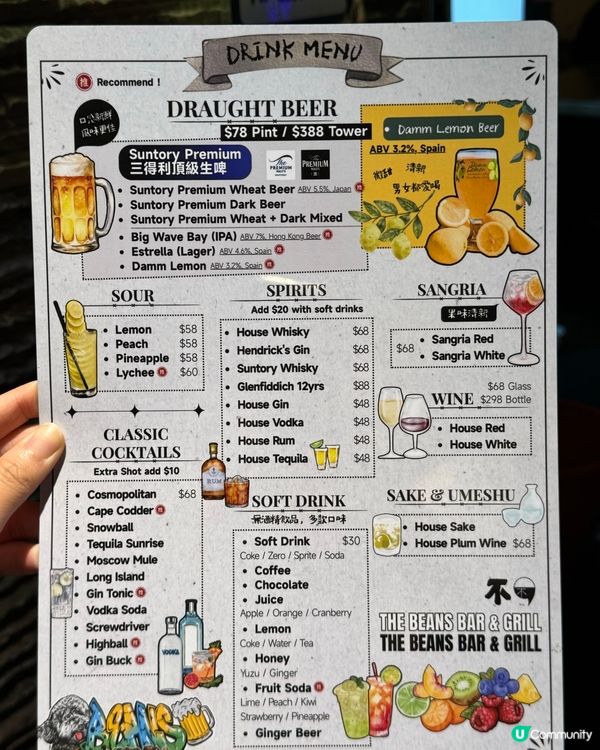 DRINK MENU
推 Recommend !
DRAUGHT BEER
$78 Pint / $388 Tower
口公新鮮
風味更佳
Suntory Premium
三得利頂級生啤
The PREMIUM MALT'S
The PREMIUM MALT'S
Suntory Premium Wheat Beer ABV 5.5%, Japan 推
Suntory Premium Dark Beer
Suntory Premium Wheat + Dark Mixed
Big Wave Bay (IPA) ABV 7%, Hong Kong Beer 推
Estrella (Lager) ABV 4.6%, Spain 推
Damm Lemon ABV 3.2%, Spain 推
Damm Lemon Beer
ABV 3.2%, Spain
微甜 清新
男女都愛喝
SOUR
Lemon $58
Peach $58
Pineapple $58
Lychee 推 $60
CLASSIC
COCKTAILS
Extra Shot add $10
Cosmopolitan $68
Cape Codder 推
Snowball
Tequila Sunrise
Moscow Mule
Long Island
Gin Tonic 推
Vodka Soda
Screwdriver
Highball 推
Gin Buck 推
VODKA
SPIRITS
Add $20 with soft drinks
House Whisky $68
Hendrick's Gin $68
Suntory Whisky $68
Glenfiddich 12yrs $88
House Gin $48
House Vodka $48
House Rum $48
House Tequila $48
RUM
SOFT DRINK
無酒精飲品，多款口味
Soft Drink $30
Coke / Zero / Sprite / Soda
Coffee
Chocolate
Juice
Apple / Orange / Cranberry
Lemon
Coke / Water / Tea
Honey
Yuzu / Ginger
Fruit Soda 推
Lime / Peach / Kiwi
Strawberry / Pineapple
Ginger Beer
SANGRIA
果味清新
$68
Sangria Red
Sangria White
WINE
$68 Glass
$298 Bottle
House Red
House White
SAKE & UMESHU
House Sake
House Plum Wine $68
THE BEANS BAR & GRILL
THE BEANS BAR & GRILL
U Community